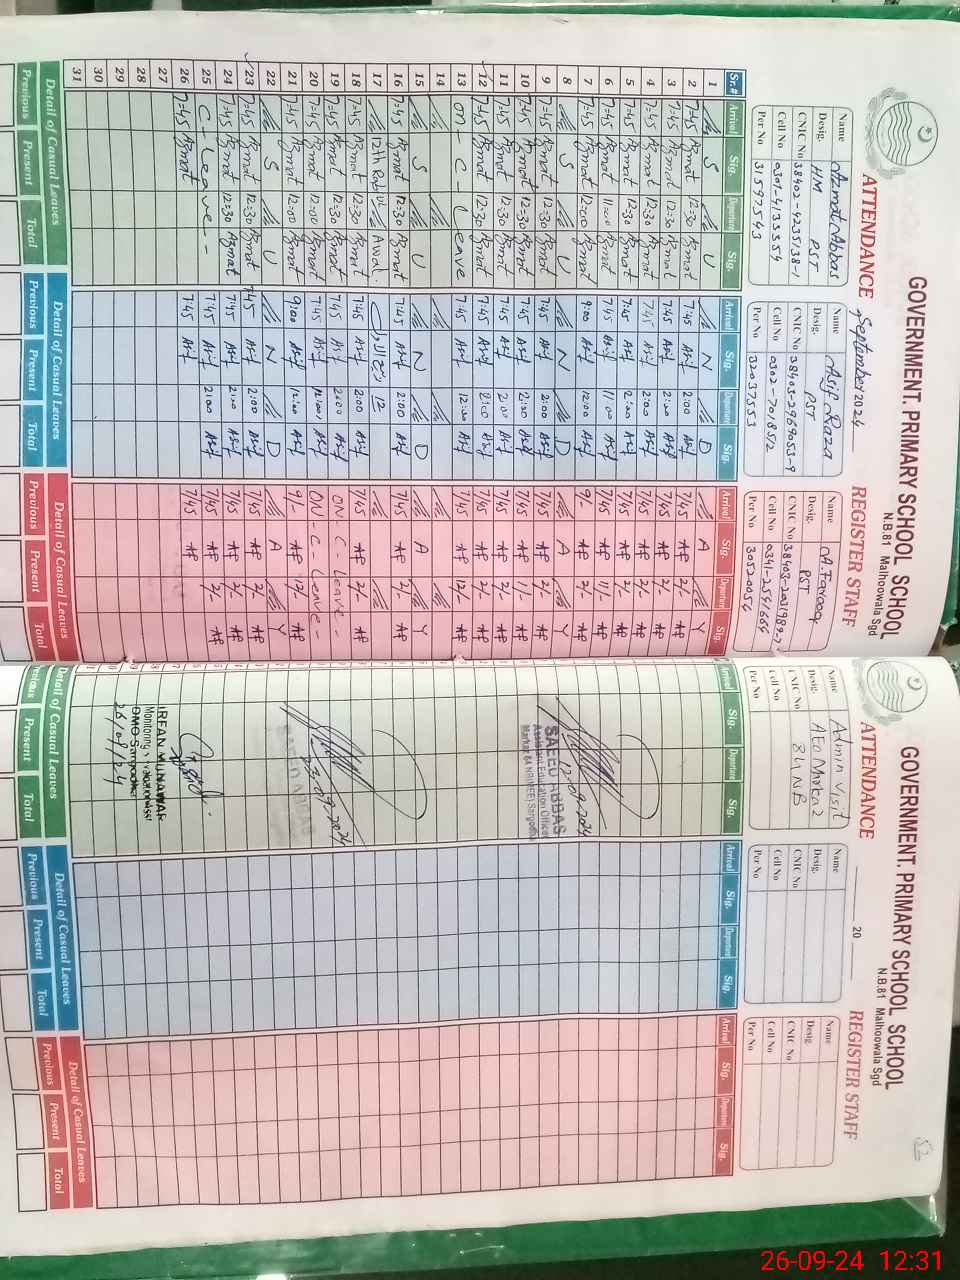 GOVERNMENT. PRIMARY SCHOOL SCHOOL
N.B.81 Malhoowala Sgd
ATTENDANCE September 2024 REGISTER STAFF
Name Azmat Abbas
Desig. HM PST
CNIC No 38402-4235138-1
Cell No 0301-4133554
Per No 31597543
Name Asif Raza
Desig. PST
CNIC No 38403-2969053-9
Cell No 0302-7018512
Per No 32037553
Name A. Farooq
Desig. PST
CNIC No 38403-2031989-7
Cell No 0341-2541664
Per No 30520054
Sr.# Arrival Sig. Departure Sig. Arrival Sig. Departure Sig. Arrival Sig. Departure Sig.
1 S U N D A Y
2 7:45 Azmat 12:30 Azmat 7:45 Asif 2:00 Asif 7/45 AF 2/- AF
3 7:45 Azmat 12:30 Azmat 7:45 Asif 2:00 Asif 7/45 AF 2/- AF
4 7:45 Azmat 12:30 Azmat 7:45 Asif 2:00 Asif 7/45 AF 2/- AF
5 7:45 Azmat 12:30 Azmat 7:45 Asif 2:00 Asif 7/45 AF 2/- AF
6 7:45 Azmat 11:00 Azmat 7:45 Asif 11:00 Asif 7/45 AF 11/- AF
7 7:45 Azmat 12:00 Azmat 9:00 Asif 12:00 Asif 9/- AF 2/- AF
8 S U N D A Y
9 7:45 Azmat 12:30 Azmat 7:45 Asif 2:00 Asif 7/45 AF 2/- AF
10 7:45 Azmat 12:30 Azmat 7:45 Asif 2:00 Asif 7/45 AF 1/- AF
11 7:45 Azmat 12:30 Azmat 7:45 Asif 2:00 Asif 7/45 AF 2/- AF
12 7:45 Azmat 12:30 Azmat 7:45 Asif 2:00 Asif 7/45 AF 2/- AF
13 on - C - Leave 7:45 Asif 12:00 Asif 7/45 AF 12/- AF
14
15 S U N D A Y
16 7:45 Azmat 12:30 Azmat 7:45 Asif 2:00 Asif 7/45 AF 2/- AF
17 12th Rabi Ul Awal. 12
18 7:45 Azmat 12:30 Azmat 7:45 Asif 2:00 Asif 7/45 AF 2/- AF
19 7:45 Azmat 12:30 Azmat 7:45 Asif 2:00 Asif ON - C - Leave -
20 7:45 Azmat 12:00 Azmat 7:45 Asif 12:00 Asif ON - C - Leave -
21 7:45 Azmat 12:00 Azmat 9:00 Asif 12:00 Asif 9/- AF 12/- AF
22 S U N D A Y
23 7:45 Azmat 12:30 Azmat 7:45 Asif 2:00 Asif 7/45 AF 2/- AF
24 7:45 Azmat 12:30 Azmat 7:45 Asif 2:00 Asif 7/45 AF 2/- AF
25 C - Leave - 7:45 Asif 2:00 Asif 7/45 AF 2/- AF
26 7:45 Azmat 7:45 Asif 7/45 AF
27
28
29
30
31
Detail of Casual Leaves Detail of Casual Leaves Detail of Casual Leaves
Previous Present Total Previous Present Total Previous Present Total
52
GOVERNMENT. PRIMARY SCHOOL SCHOOL
N.B.81 Malhoowala Sgd
ATTENDANCE 20 REGISTER STAFF
Name Admin Visit
Desig. AEO Markaz
CNIC No 84 NB
Cell No
Per No
Name
Desig.
CNIC No
Cell No
Per No
Name
Desig.
CNIC No
Cell No
Per No
Arrival Sig. Departure Sig. Arrival Sig. Departure Sig. Arrival Sig. Departure Sig.
12-09-2024
SAEED ABBAS
Assistant Education Officer
Markaz 84 NB(MEE) Sargodha
23-09-2024
SAEED ABBAS
IRFAN MUNAWAR
DMO Sargodha
26/09/24
Detail of Casual Leaves Detail of Casual Leaves Detail of Casual Leaves
Previous Present Total Previous Present Total Previous Present Total
26-09-24 12:31